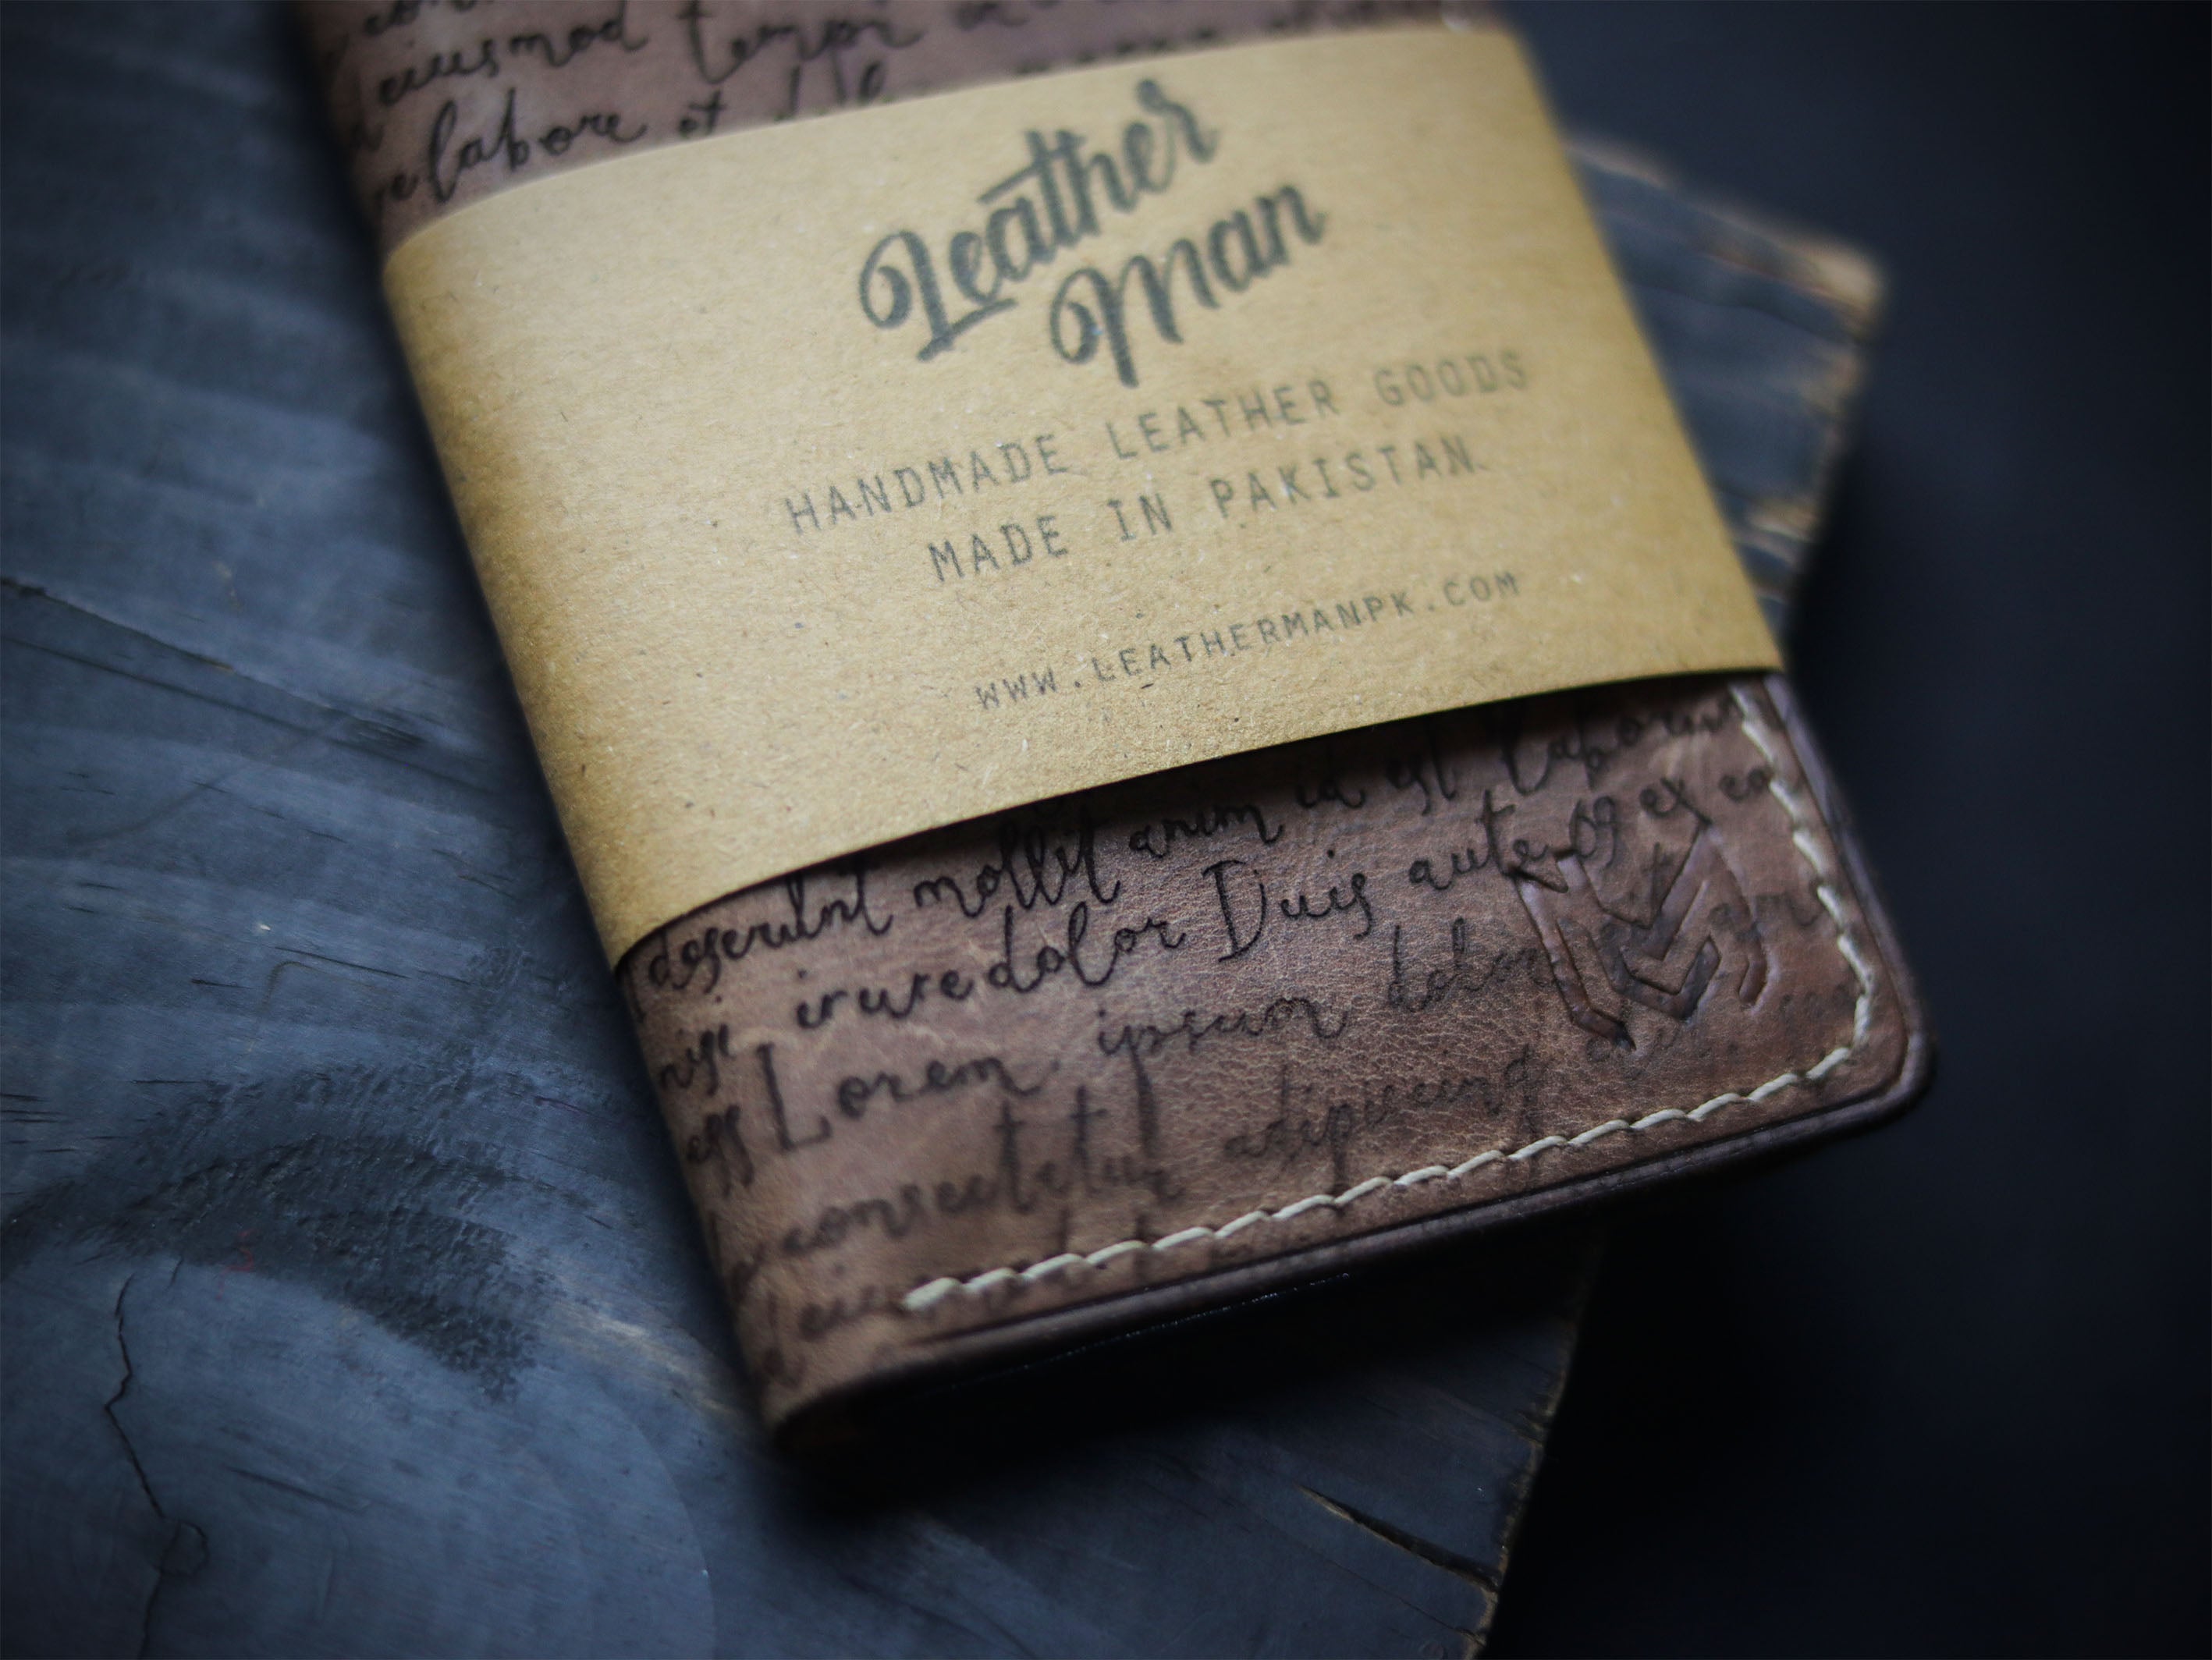 eiusmod tempor
labore et
Leather
Man
HANDMADE LEATHER GOODS
MADE IN PAKISTAN.
WWW.LEATHERMANPK.COM
deserunt mollit anim id est laborum
nisi irure dolor Duis aute ex ea
Lorem ipsum dolor
consectetur adipiscing